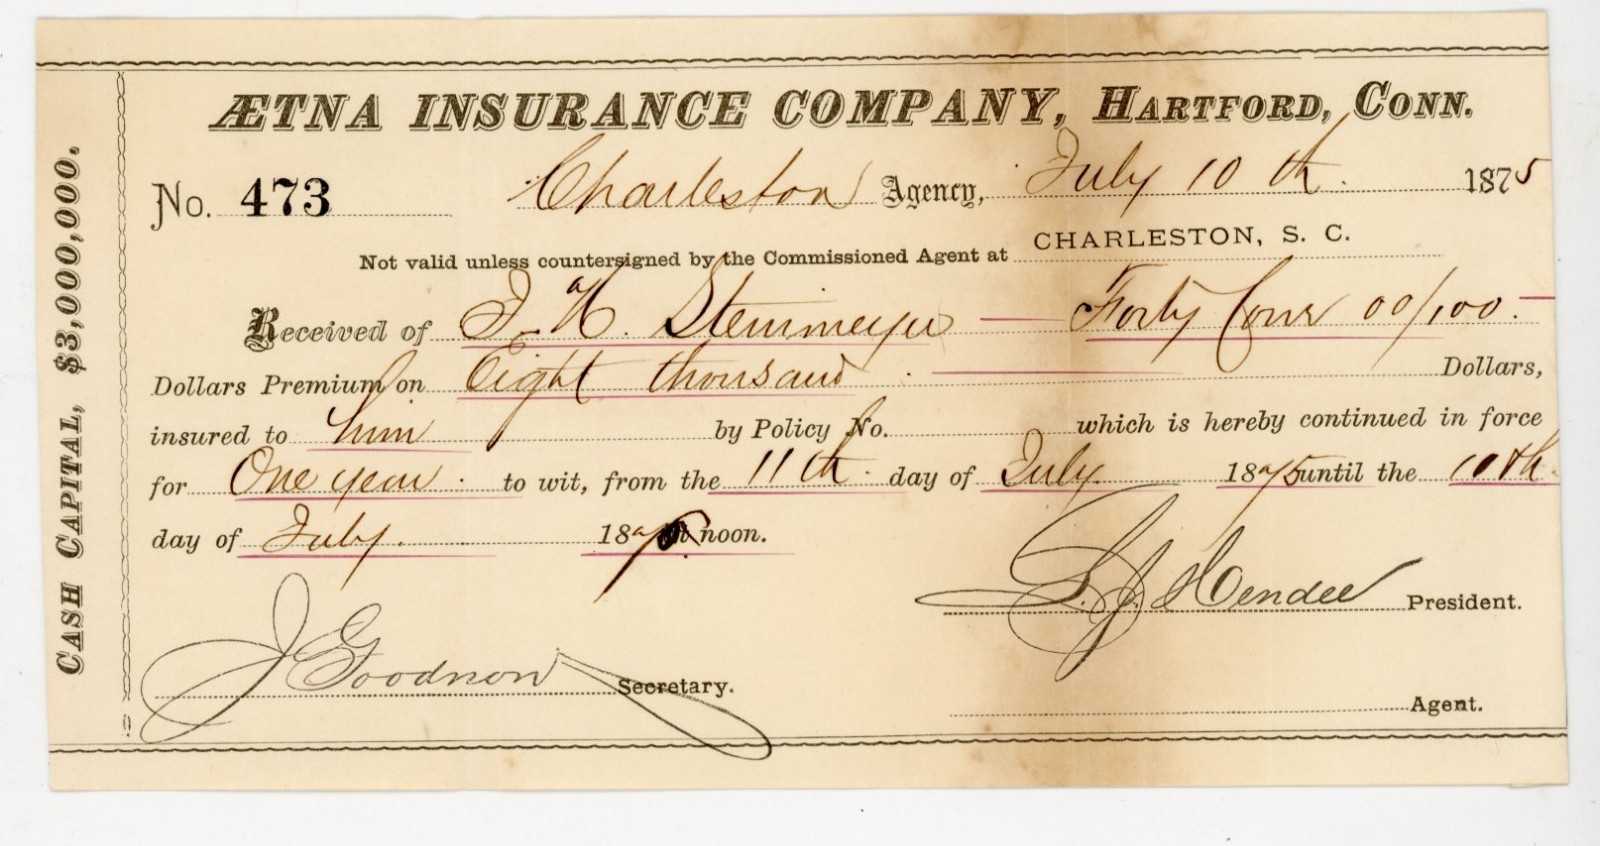 ÆTNA INSURANCE COMPANY, HARTFORD, CONN.
No. 473 Charleston Agency, July 10th. 1875
Not valid unless countersigned by the Commissioned Agent at CHARLESTON, S. C.
Received of J. H. Steinmeyer Forty four 00/100.
Dollars Premium on Eight thousand Dollars,
insured to him by Policy No. which is hereby continued in force
for One year. to wit, from the 11th. day of July. 1875 until the 10th.
day of July. 187 at noon.
L. J. Hendee President.
J Goodnow Secretary.
Agent.
CASH CAPITAL, $3,000,000.